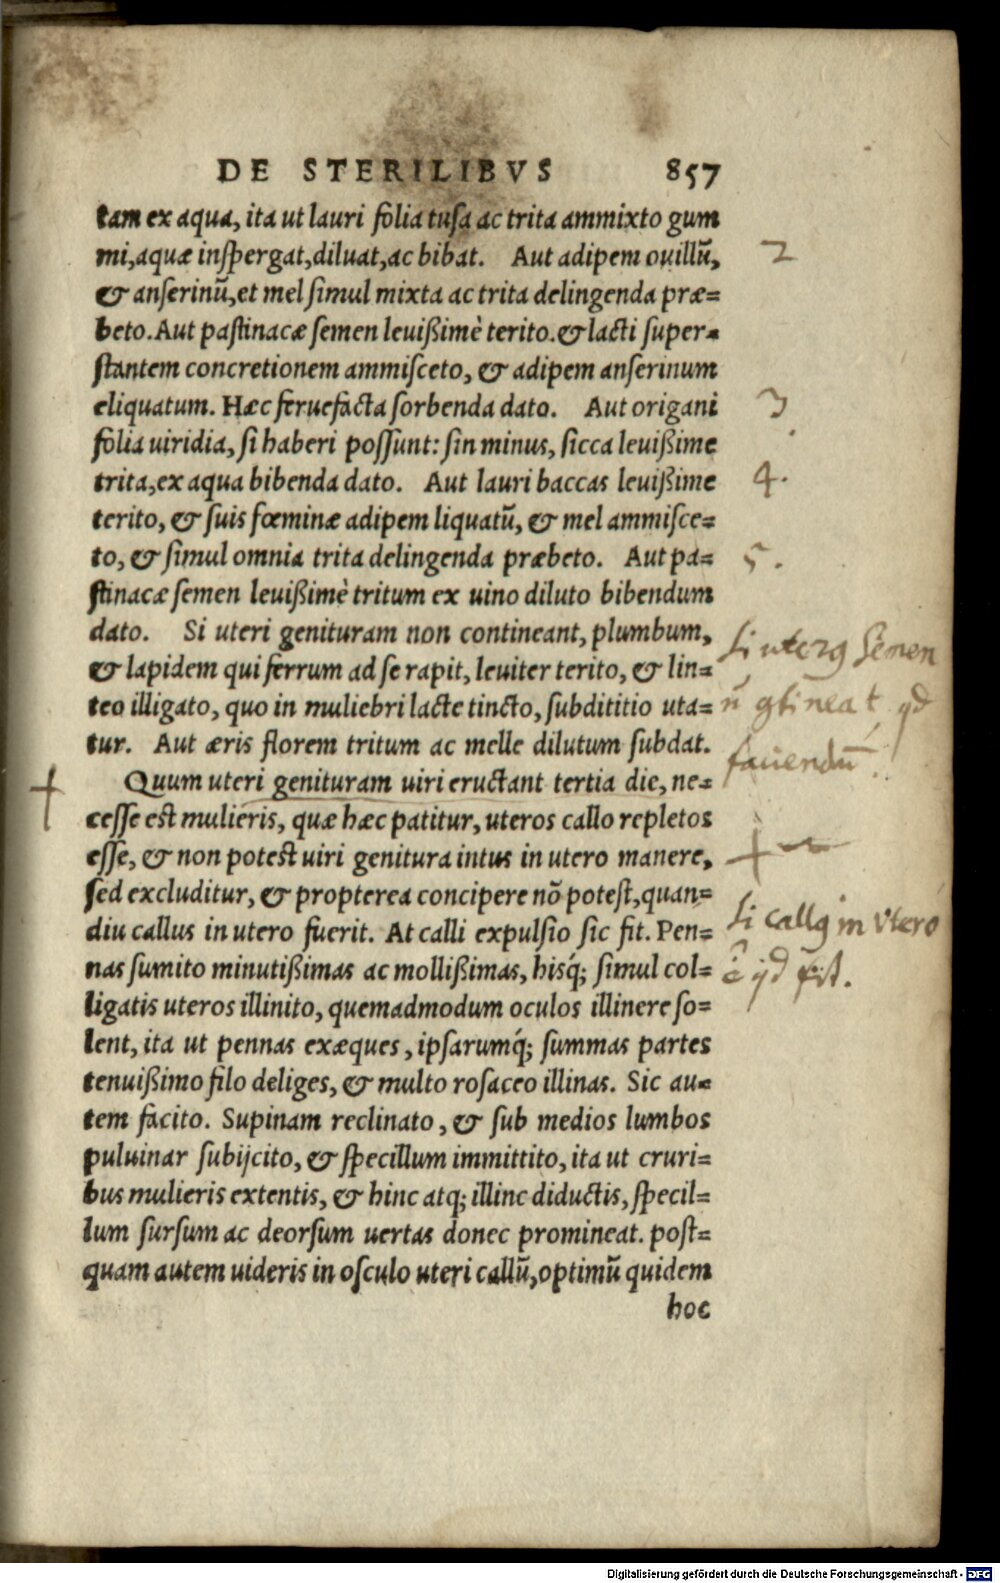 DE STERILIBVS 857
tam ex aqua, ita ut lauri folia tusa ac trita ammixto gum
mi, aquæ inspergat, diluat, ac bibat. Aut adipem ouillū,
& anserinū, et mel simul mixta ac trita delingenda præ=
beto. Aut pastinacæ semen leuißimè terito. & lacti super=
stantem concretionem ammisceto, & adipem anserinum
eliquatum. Hæc feruefacta sorbenda dato. Aut origani
folia uiridia, si haberi possunt: sin minus, sicca leuißime
trita, ex aqua bibenda dato. Aut lauri baccas leuißime
terito, & suis fœminæ adipem liquatū, & mel ammisce=
to, & simul omnia trita delingenda præbeto. Aut pa=
stinacæ semen leuißimè tritum ex uino diluto bibendum
dato. Si uteri genituram non contineant, plumbum,
& lapidem qui ferrum ad se rapit, leuiter terito, & lin=
teo illigato, quo in muliebri lacte tincto, subdititio uta=
tur. Aut æris florem tritum ac melle dilutum subdat.
Quum uteri genituram uiri eructant tertia die, ne=
cesse est mulieris, quæ hæc patitur, uteros callo repletos
esse, & non potest uiri genitura intus in utero manere,
sed excluditur, & propterea concipere nō potest, quan=
diu callus in utero fuerit. At calli expulsio sic fit. Pen=
nas sumito minutißimas ac mollißimas, hisq́; simul col=
ligatis uteros illinito, quemadmodum oculos illinere so=
lent, ita ut pennas exæques, ipsarumq́; summas partes
tenuißimo filo deliges, & multo rosaceo illinas. Sic au=
tem facito. Supinam reclinato, & sub medios lumbos
puluinar subijcito, & specillum immittito, ita ut cruri=
bus mulieris extentis, & hinc atq; illinc diductis, specil=
lum sursum ac deorsum uertas donec promineat. post=
quam autem uideris in osculo uteri callū, optimū quidem
hoc
2
3
4.
5.
Si uterꝯ semen
n̄ ꝯtineat qd
faciendū.
Si callꝯ in vtero
ē qd fit.
Digitalisierung gefördert durch die Deutsche Forschungsgemeinschaft - DFG